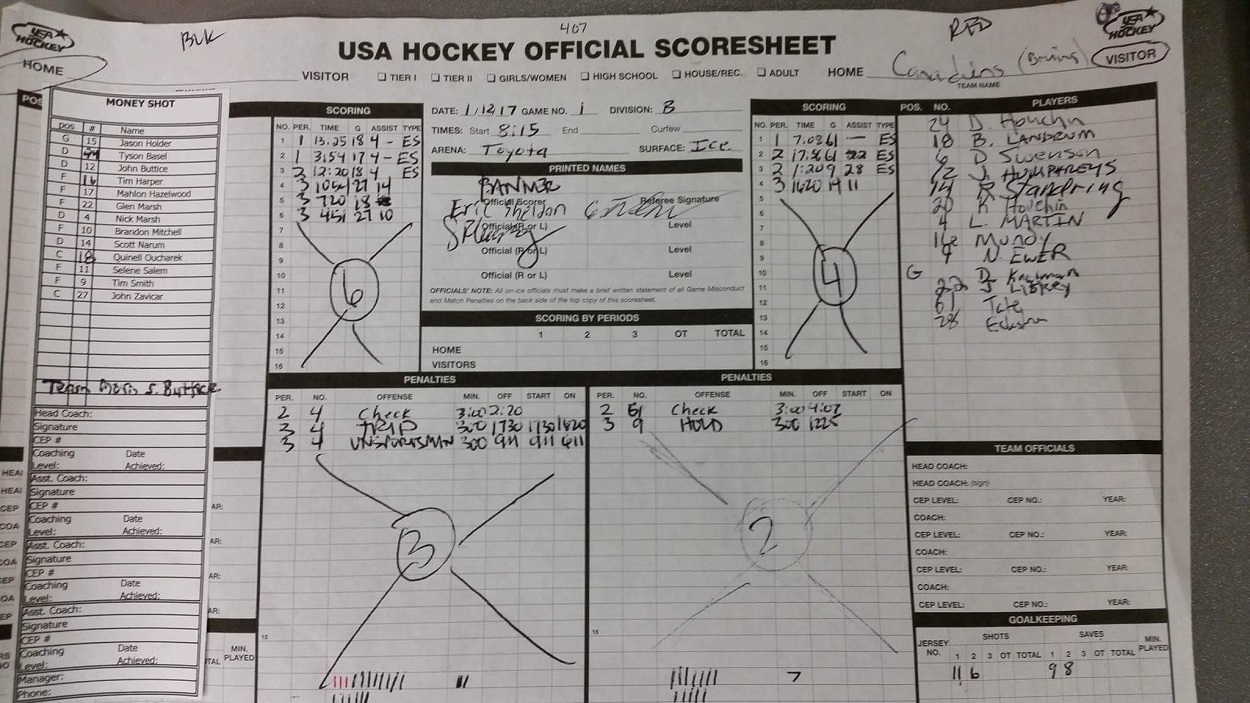 407
BLK
RED
USA HOCKEY
USA HOCKEY OFFICIAL SCORESHEET
USA HOCKEY
HOME
VISITOR ☐ TIER I ☐ TIER II ☐ GIRLS/WOMEN ☐ HIGH SCHOOL ☐ HOUSE/REC. ☐ ADULT HOME Canadiens (Bruins) VISITOR
TEAM NAME
MONEY SHOT
POS # Name
G 15 Jason Holder
D Tyson Basel
D 12 John Buttice
F 16 Tim Harper
F 17 Mahlon Hazelwood
F 22 Glen Marsh
D 4 Nick Marsh
F 10 Brandon Mitchell
D 14 Scott Narum
C 18 Quinell Oucharek
F 11 Selene Salem
F 9 Tim Smith
C 27 John Zavicar
Head Coach:
Signature
CEP #
Coaching Date
Level: Achieved:
Asst. Coach:
Signature
CEP #
Coaching Date
Level: Achieved:
Asst. Coach:
Signature
CEP #
Coaching Date
Level: Achieved:
Asst. Coach:
Signature
CEP #
Coaching Date
Level: Achieved:
Manager:
Phone:
SCORING
NO. PER. TIME G ASSIST TYPE
1 1 13.25 18 4 - ES
2 1 3:54 17 4 - ES
3 2 12:20 18 4 ES
4 3 27 14
5 3 720 18
6 3 451 27 10
7
8
9
10
11
12
13
14
15
16
6
DATE: 1/12/17 GAME NO. 1 DIVISION: B
TIMES: Start 8:15 End Curfew
ARENA: Toyota SURFACE: Ice
PRINTED NAMES
BANMER
Official Scorer Referee Signature
Eric Sheldon
Official (R or L) Level
Official (R or L) Level
Official (R or L) Level
OFFICIALS' NOTE: All on-ice officials must make a brief written statement of all Game Misconduct
and Match Penalties on the back side of the top copy of this scoresheet.
SCORING BY PERIODS
1 2 3 OT TOTAL
HOME
VISITORS
SCORING
NO. PER. TIME G ASSIST TYPE
1 1 7.08 61 — ES
2 2 17.56 61 22 ES
3 2 1:20 9 28 ES
4 3 1620 14 11
5
6
7
8
9
10
11
12
13
14
15
16
4
POS. NO. PLAYERS
24 D. Houchin
18 B. LANDRUM
6 D Swenson
12 J. HUMPHREYS
14 R Standring
20 K Houchin
4 L. MARTIN
16 Mundy
9 N. EWER
G D.
22 J
61 Tate
28
PENALTIES
PER. NO. OFFENSE MIN. OFF START ON
2 4 Check 3:00 2:20
3 4 TRIP 300 1730 1730 1620
3 4 UNSPORTSMAN 300 911 911 611
3
15
PENALTIES
PER. NO. OFFENSE MIN. OFF START ON
2 61 Check 3:00 4:07
3 9 HOLD 300 1225
2
15
7
TEAM OFFICIALS
HEAD COACH:
HEAD COACH: (sign)
CEP LEVEL: CEP NO.: YEAR:
COACH:
CEP LEVEL: CEP NO.: YEAR:
COACH:
CEP LEVEL: CEP NO.: YEAR:
COACH:
CEP LEVEL: CEP NO.: YEAR:
GOALKEEPING
JERSEY NO. SHOTS SAVES MIN. PLAYED
1 2 3 OT TOTAL 1 2 3 OT TOTAL
11 6 9 8
MIN.
PLAYED